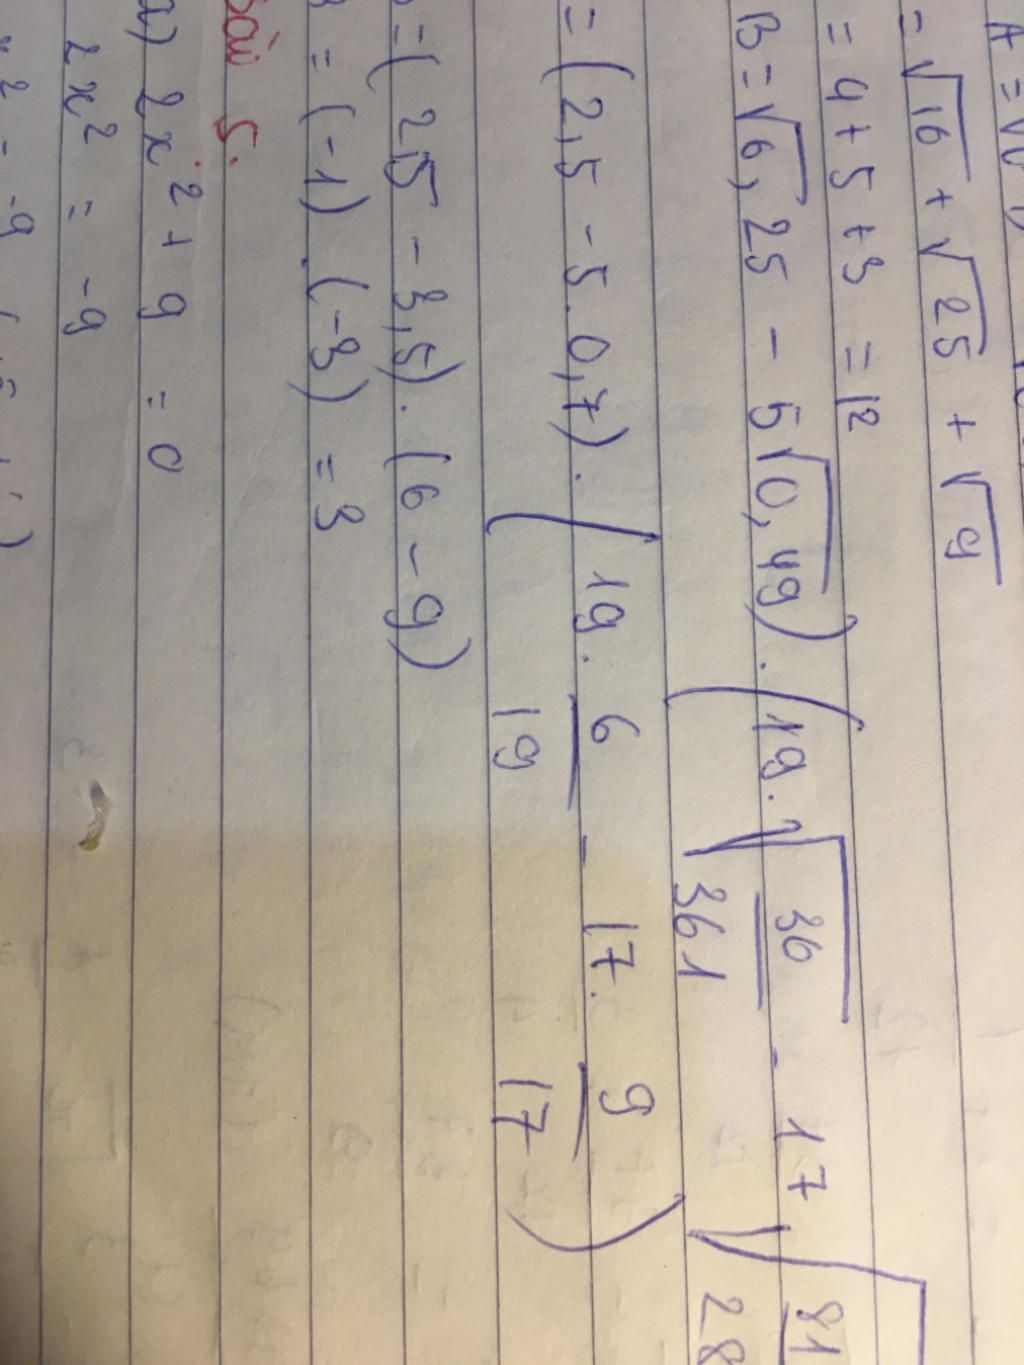 A = √
= √16 + √25 + √9
= 4 + 5 + 3 = 12
B = √6,25 - 5√0,49) . (19. √36/361 - 17 √81/28
= (2,5 - 5.0,7) . (19. 6/19 - 17. 9/17)
= (2,5 - 3,5) . (6 - 9)
= (-1) . (-3) = 3
Bài 5.
a) 2x² + 9 = 0
2x² = -9
x² = -9